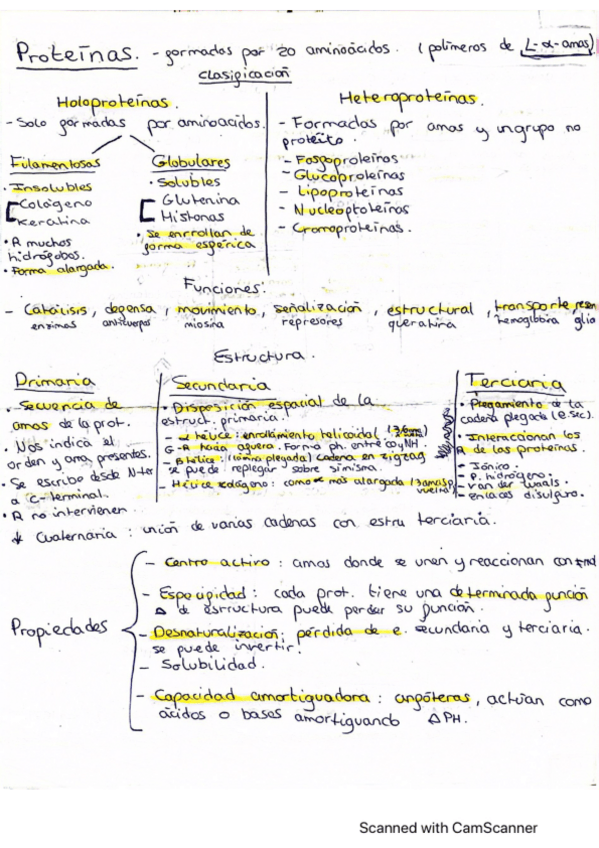 Proteínas. - formadas por 20 aminoácidos. (polímeros de L-α-amas)
clasificación
Holoproteínas.
- Solo formadas por aminoácidos.
Filamentosas
· Insolubles
Colágeno
Keratina
· R muchos
hidrófobos.
· Forma alargada.
Globulares
· Solubles
Glutenina
Histonas
· Se enrrollan de
forma esférica
Heteroproteínas.
- Formadas por amas y un grupo no
protéico.
- Fosfoproteínas
- Glucoproteínas
- Lipoproteínas
- Nucleoproteínas
- Cromoproteínas.
Funciones:
- Catálisis, defensa, movimiento, señalización, estructural, transporte,
enzimas anticuerpos miosina represores queratina hemoglobina glio
Estructura.
Primaria
· Secuencia de
amas de la prot.
· Nos indica el
orden y ama presentes.
· Se escribe desde N-ter
a C-terminal.
· R no intervienen.
Secundaria
· Disposición espacial de la
estruct. primaria.
- α hélice: enrollamiento helicoidal (3,6
G-R hacia afuera. Forma ph. entre CO y NH.
- β hélice: (lámina plegada) cadena en zigzag
se puede replegar sobre si misma.
- Hélice colágeno: como α más alargada (3 amas p.
vuelta)
Terciaria
· Plegamiento de la
cadena plegada (e.sec).
· Interaccionan los
R de las proteínas.
- Iónico.
- P. hidrógeno.
- van der Waals.
- enlaces disulfuro.
↓ Cuaternaria: unión de varias cadenas con estru terciaria.
Propiedades
- Centro activo: amas donde se unen y reaccionan con
- Especifidad: cada prot. tiene una determinada función
Δ de estructura puede perder su función.
- Desnaturalización: pérdida de e. secundaria y terciaria.
se puede invertir.
- Solubilidad.
- Capacidad amortiguadora: anfóteras, actúan como
ácidos o bases amortiguando ΔPH.
Scanned with CamScanner